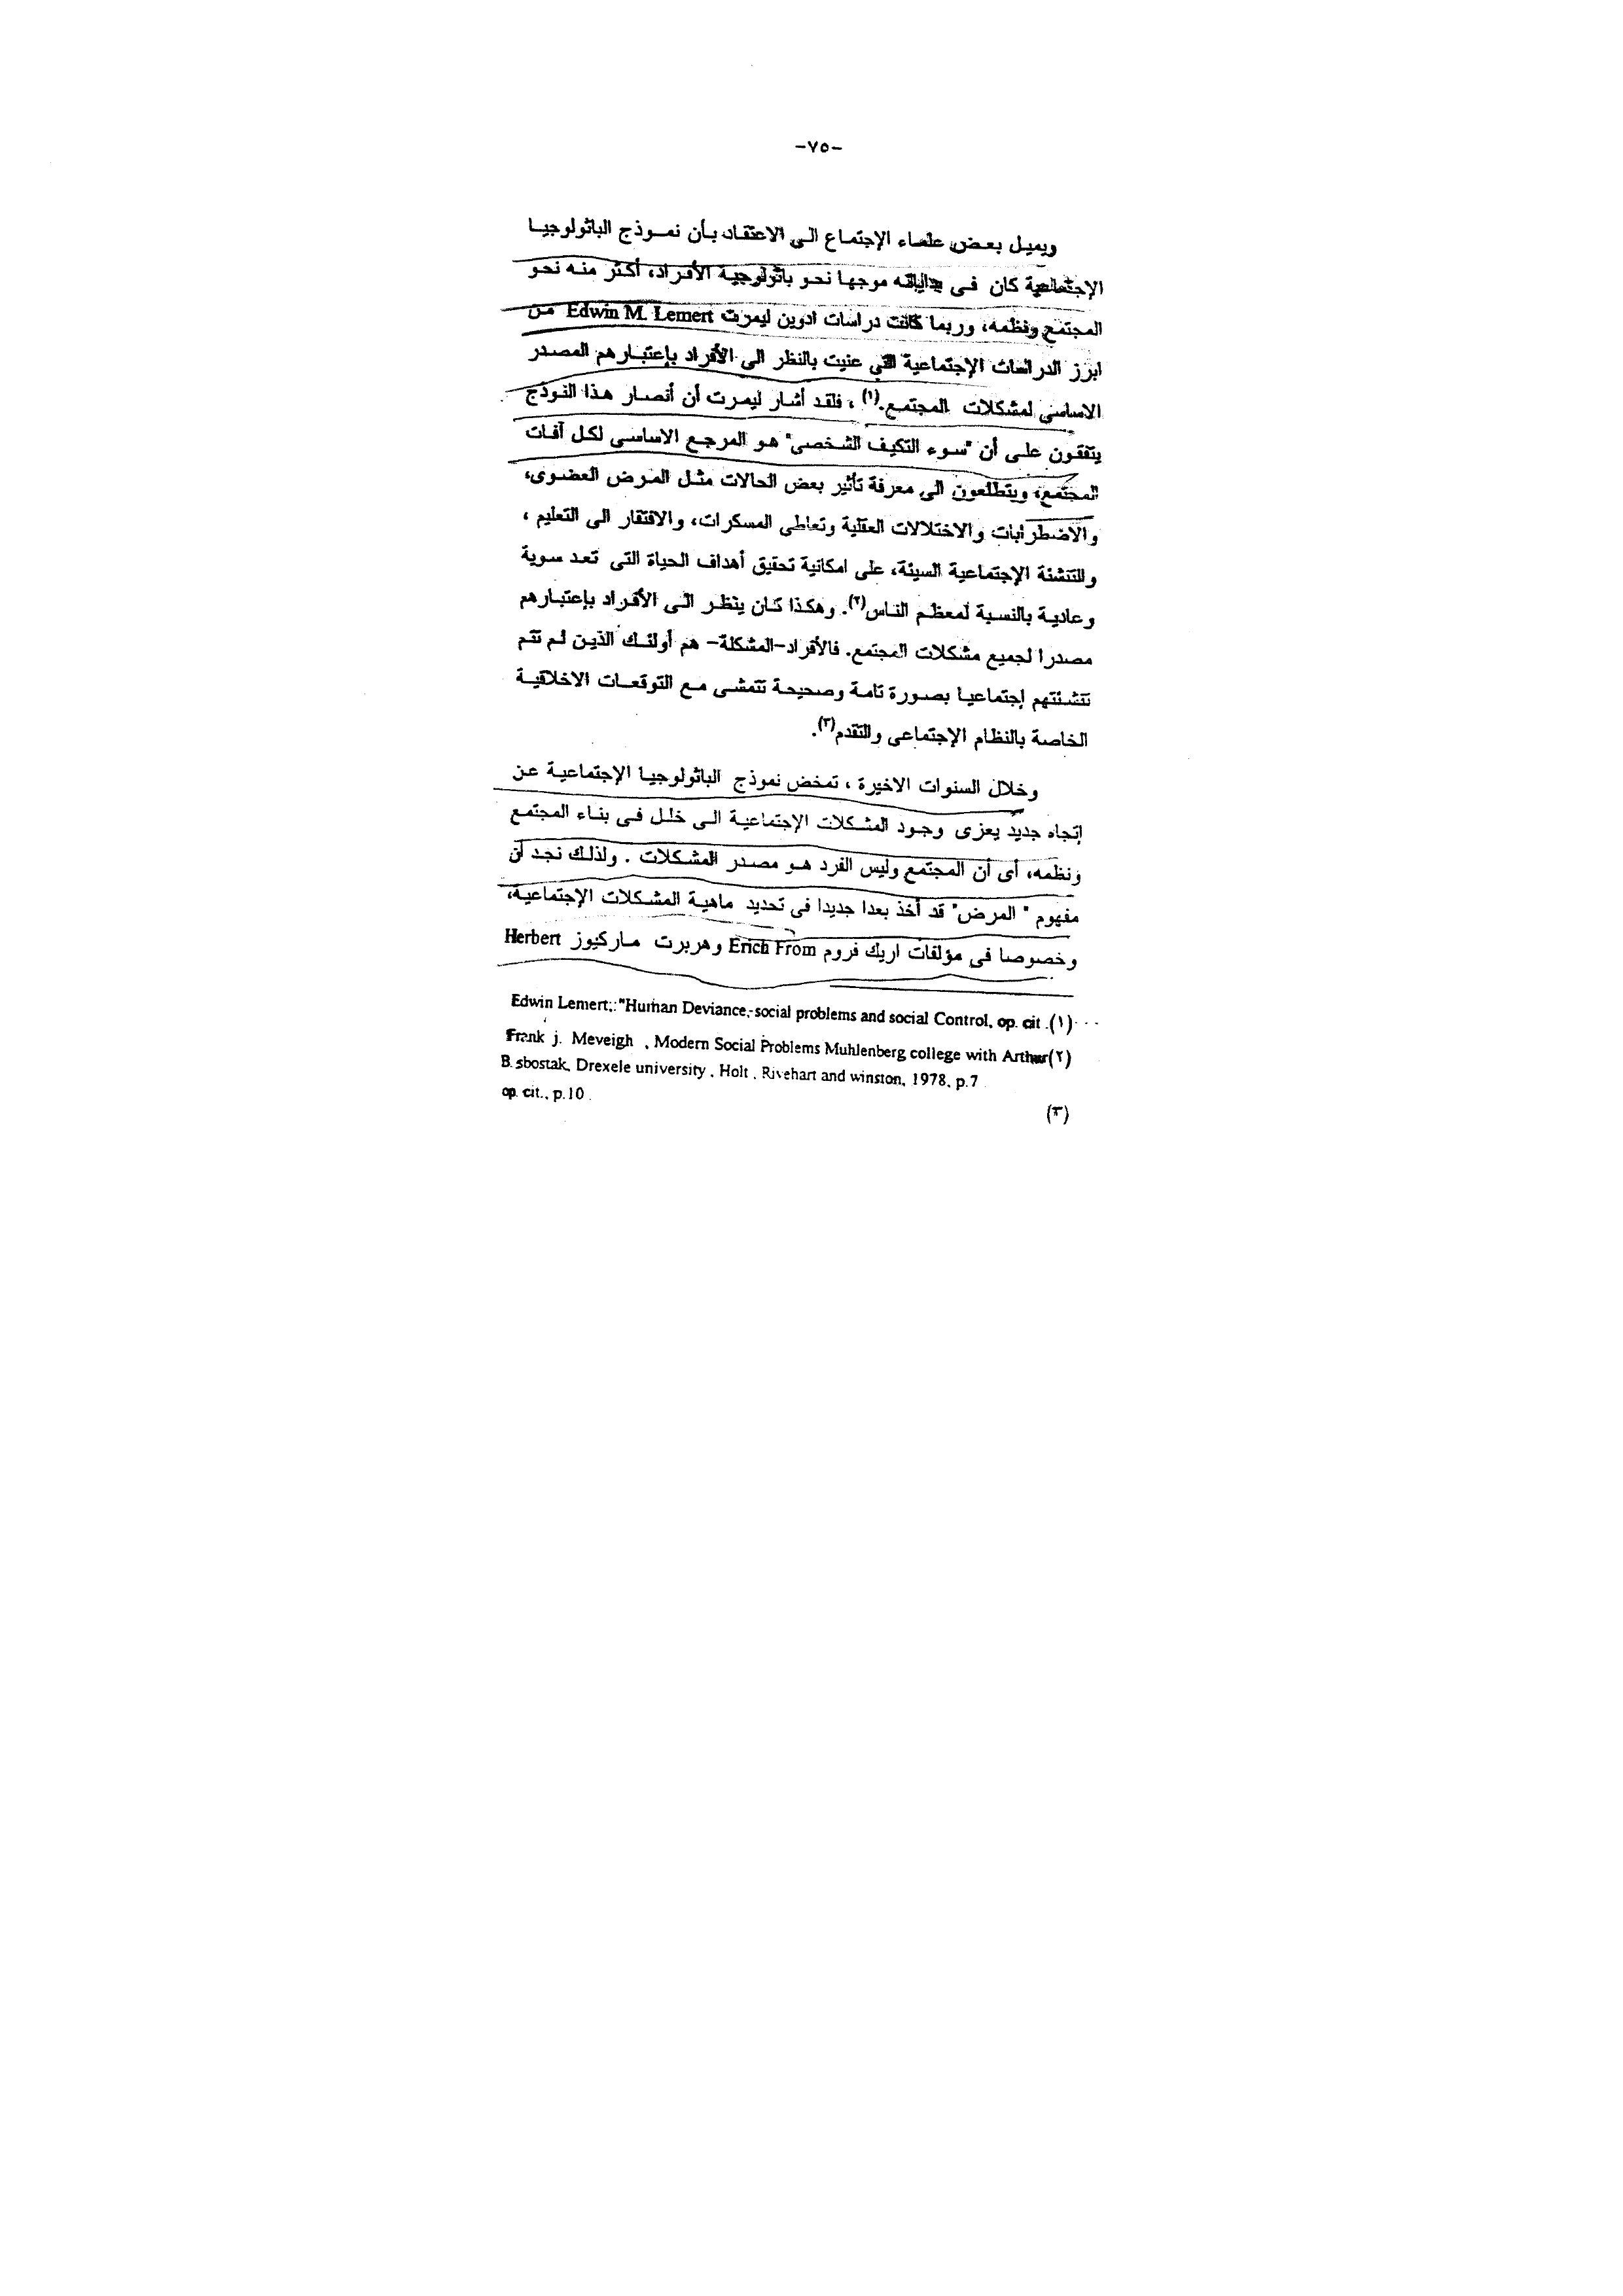 -٧٥-
ويميل بعض علماء الإجتماع الى الاعتقاد بأن نموذج الباثولوجيا
الإجتماعية كان فى بداياته موجها نحو باثولوجية الأفراد، أكثر منه نحو
المجتمع ونظمه، وربما كانت دراسات ادوين ليمرت Edwin M. Lemert من
ابرز الدراسات الإجتماعية التي عنيت بالنظر الى الأفراد بإعتبارهم المصدر
الاساسى لمشكلات المجتمع.(١) ، فلقد أشار ليمرت أن أنصار هذا النوذج
يتفقون على أن "سوء التكيف الشخصى" هو المرجع الاساسى لكل آفات
المجتمع، ويتطلعون الى معرفة تأثير بعض الحالات مثل المرض العضوى،
والاضطرابات والاختلالات العقلية وتعاطى المسكرات، والافتقار الى التعليم ،
وللتنشئة الإجتماعية السيئة، على امكانية تحقيق أهداف الحياة التى تعد سوية
وعادية بالنسبة لمعظم الناس(٢). وهكذا كان ينظر الى الأفراد بإعتبارهم
مصدرا لجميع مشكلات المجتمع. فالأفراد-المشكلة- هم أولئك الذين لم تتم
تنشئتهم إجتماعيا بصورة تامة وصحيحة تتمشى مع التوقعات الاخلاقية
الخاصة بالنظام الإجتماعى والتقدم(٣).
وخلال السنوات الاخيرة ، تمخض نموذج الباثولوجيا الإجتماعية عن
إتجاه جديد يعزى وجود المشكلات الإجتماعية الى خلل فى بناء المجتمع
ونظمه، أى أن المجتمع وليس الفرد هو مصدر المشكلات . ولذلك نجد أن
مفهوم " المرض" قد أخذ بعدا جديدا فى تحديد ماهية المشكلات الإجتماعية،
وخصوصا فى مؤلفات اريك فروم Erich From وهربرت ماركيوز Herbert
Edwin Lemert;:"Human Deviance,-social problems and social Control, op. cit .(١)
Frank j. Meveigh , Modern Social Problems Muhlenberg college with Arthur(٢)
B. sbostak, Drexele university , Holt , Rivehart and winston, 1978, p.7
op. cit., p.10 .
(٣)